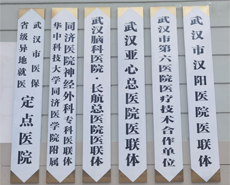 省级异地就医
武汉市医保
定点医院
华中科技大学同济医学院附属
同济医院神经外科专科医联体
武汉脑科医院·长航总医院医联体
武汉亚心总医院医联体
武汉市第六医院医疗技术合作单位
武汉市汉阳医院医联体